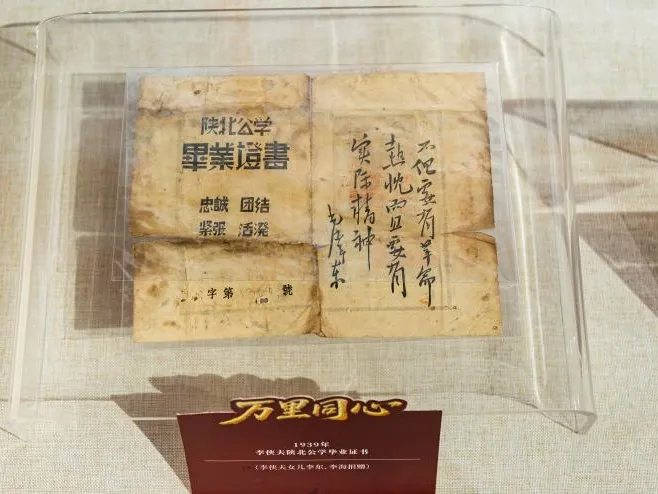 陕北公学
畢業證書
忠誠 团结
紧張 活潑
字第 號
不但要有革命
热忱而且要有
实际精神
毛泽东
万里同心
1939年
李侠夫陕北公学毕业证书
(李侠夫女儿李东,李海捐赠)